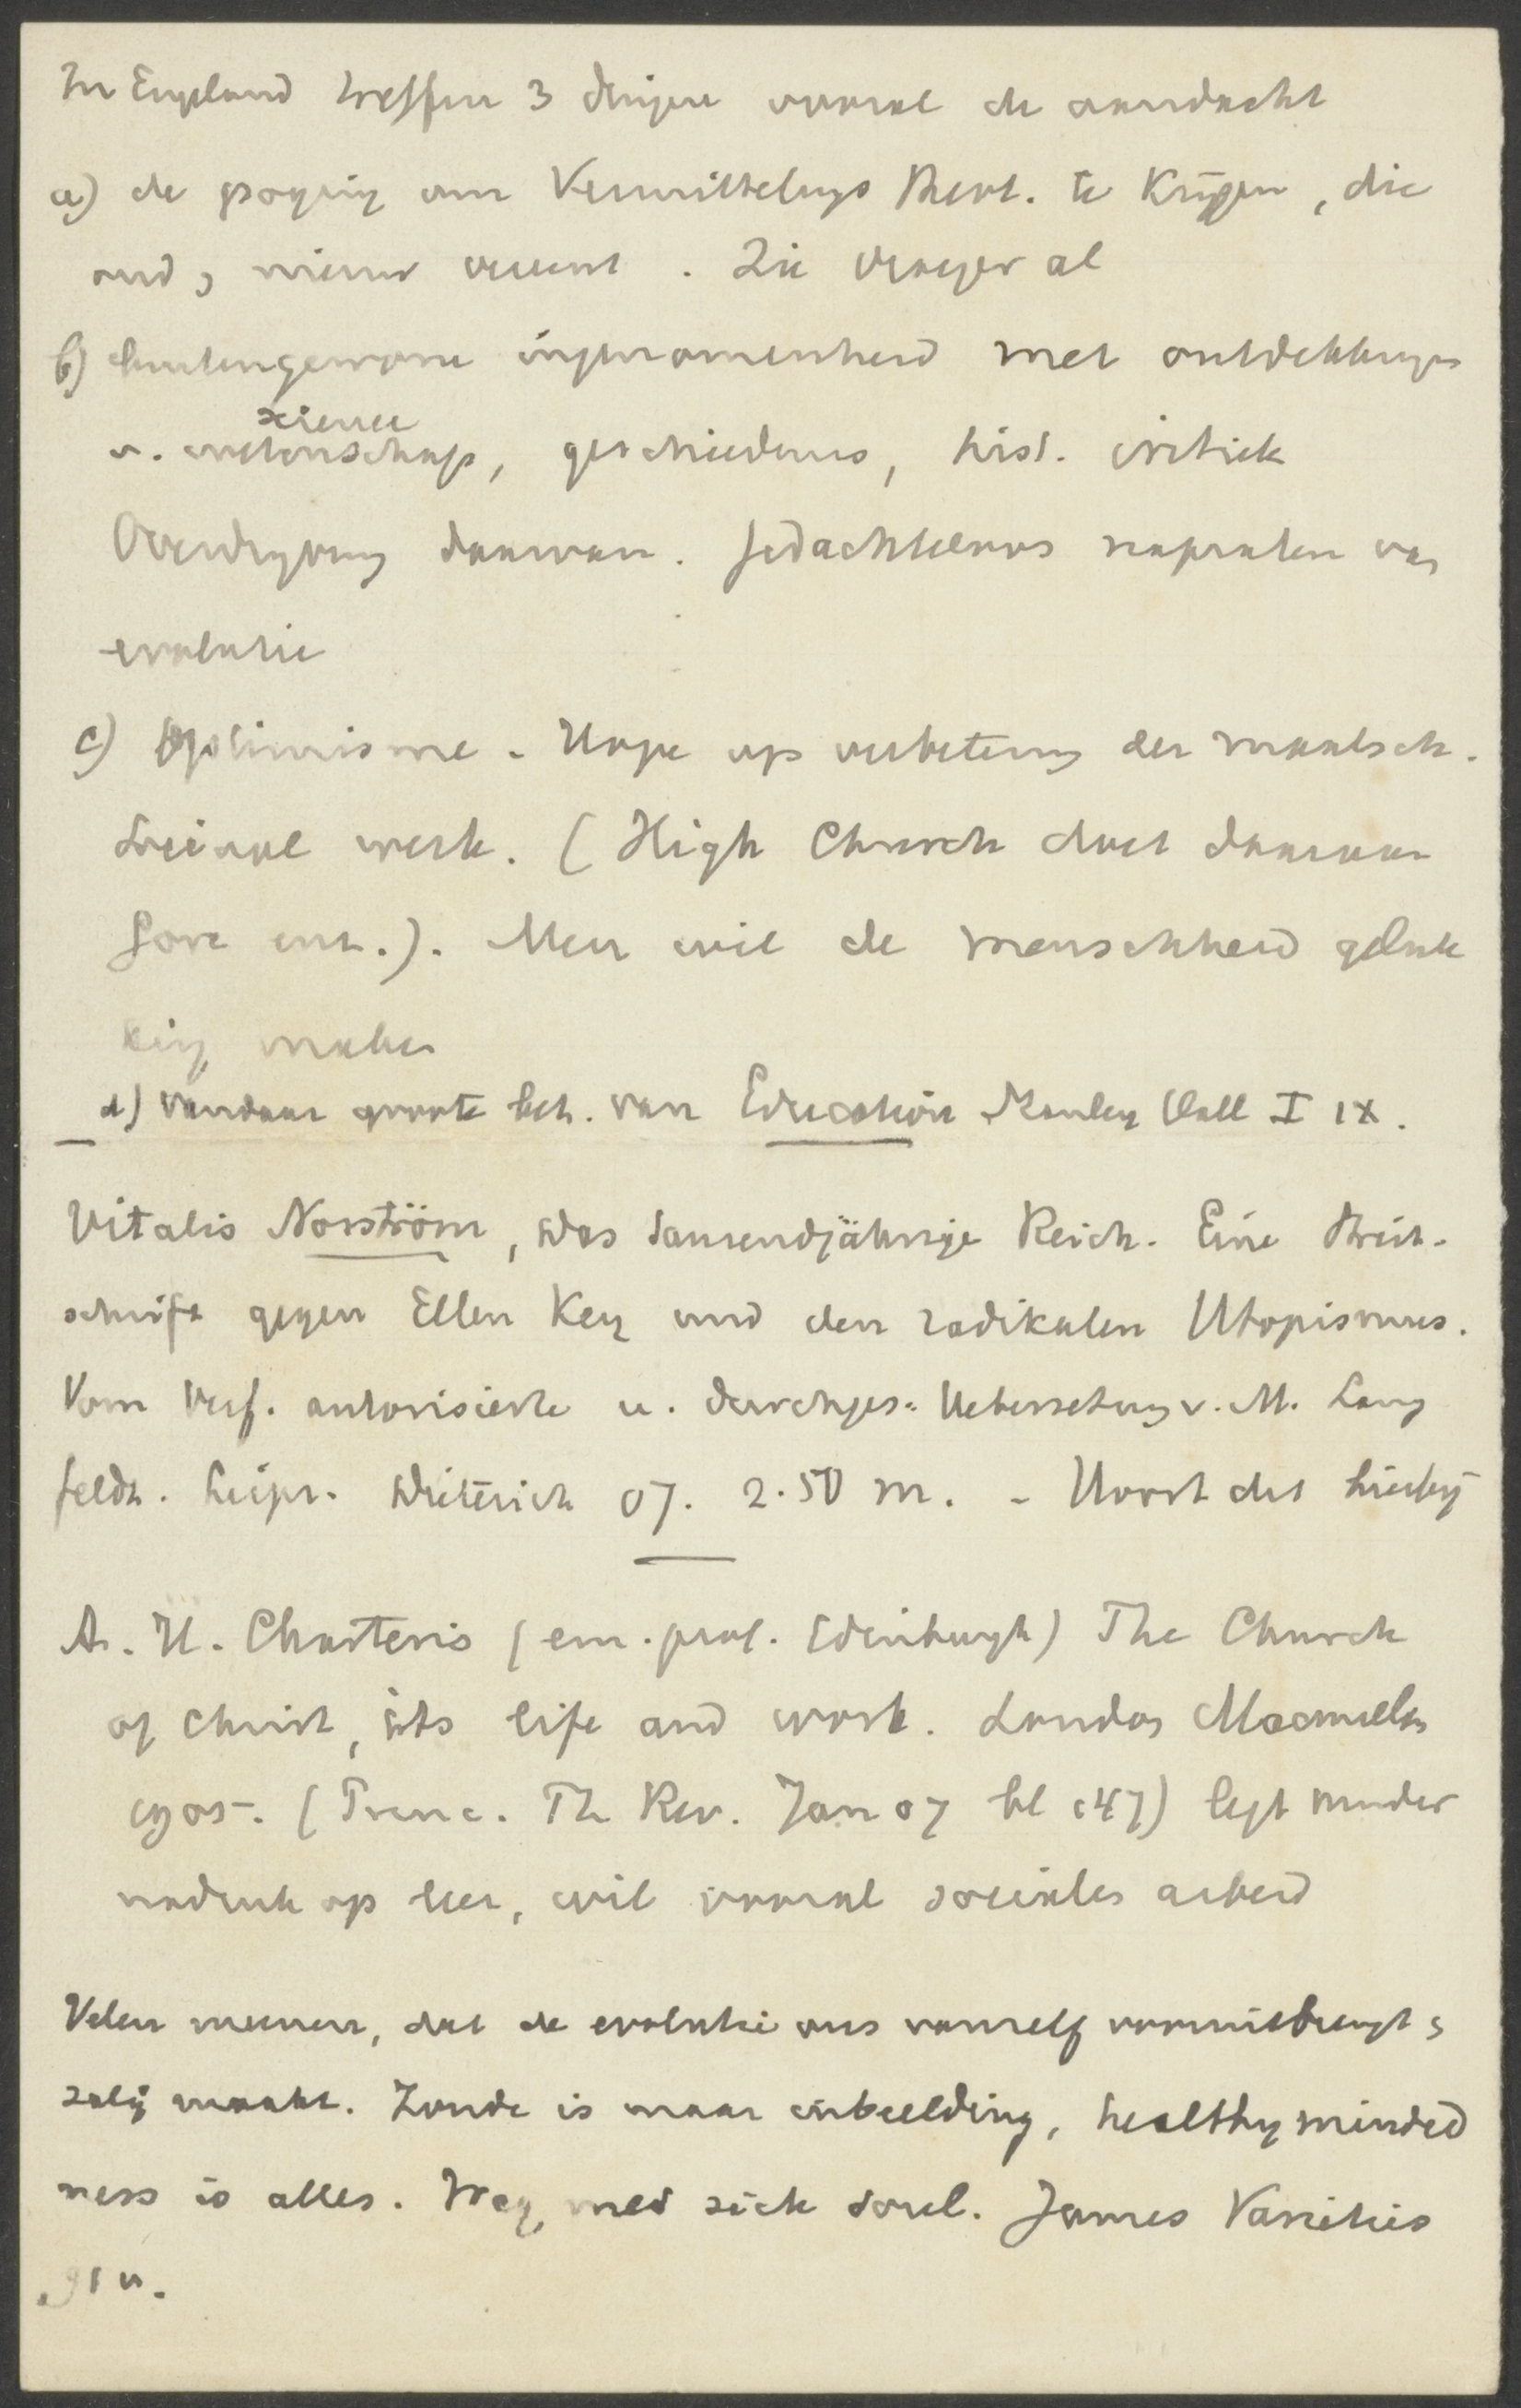 In Engeland treffen 3 dingen vooral de aandacht
a) de poging om Vermittelungs Theol. te krijgen, die
oud en nieuw vereent. Zie vroeger al
b) buitengewone ingenomenheid met ontdekkingen
science
v. wetenschap, geschiedenis, hist. critiek
Overdrijving daarvan. gedachteloos napraten van
evolutie
c) Optimisme - Hope op verbetering der maatsch.
sociaal werk. (High Church doet daaraan
Gore enz.). Men wil de menschheid geluk
kig maken
d) vandaar groote bet. van Education Stanley Hall I IX.
Vitalis Norström, Das tausendjährige Reich. Eine Streit-
schrift gegen Ellen Key und den radikalen Utopismus.
Vom Verf. autorisierte u. durchges. Uebersetzung v. M. Lang
feldt. Leipz. Dieterich 07. 2.50 M. - Hoort dit hierbij
A. H. Charteris (em. prof. Edinburgh) The Church
of Christ, its life and work. London Macmillan
1905. (Princ. Th Rev. Jan 07 bl 147) legt minder
nadruk op leer, wil vooral socialen arbeid
Velen meenen, dat de evolutie ons vanzelf vooruitbrengt en
zalig maakt. Zonde is maar inbeelding, healthy minded
ness is alles. Weg met sick soul. James Varieties
91 v.